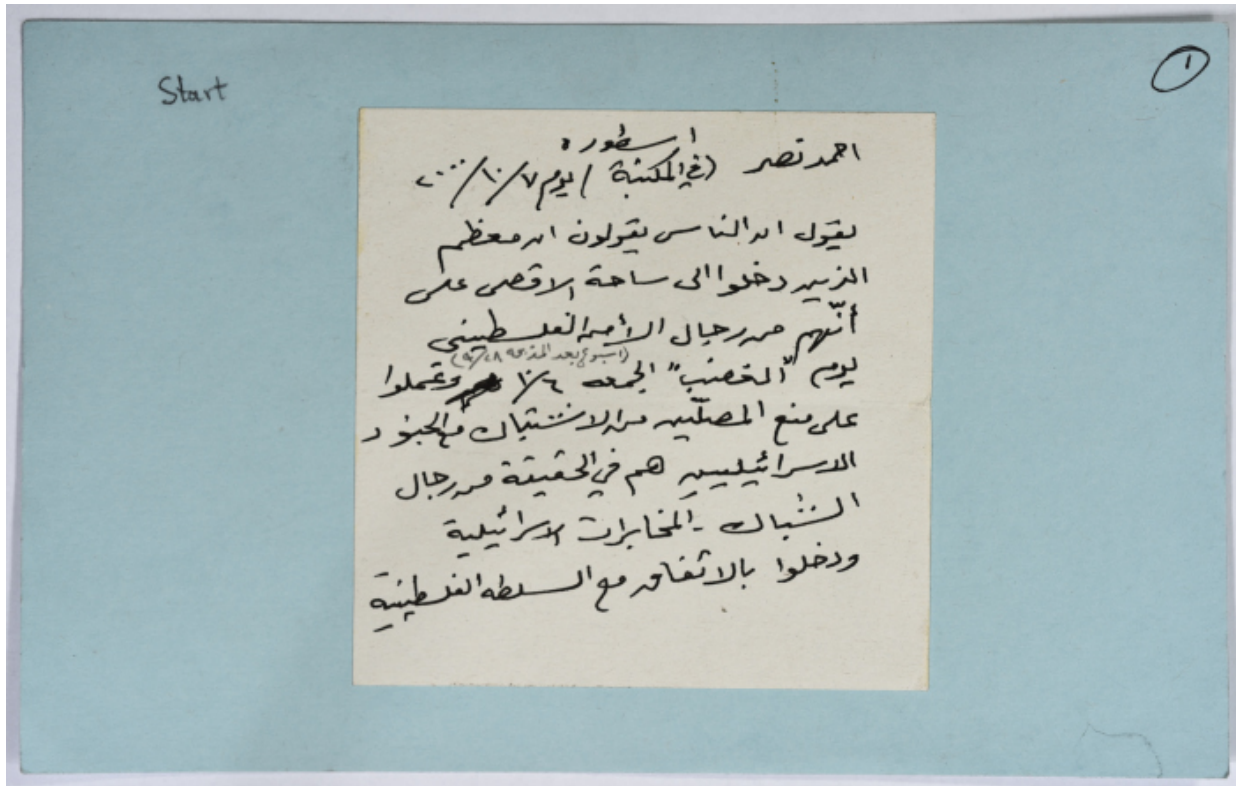 Start
١
اسطوره
احمد نصر (في المكتبة) يوم ٧/١٠/٢٠٠٠
يقول ان الناس يقولون ان معظم
الذين دخلوا الى ساحة الاقصى على
أنّهم من رجال الأمن الفلسطيني
(اسبوع بعد المذبحه ٩/٢٨)
يوم "الغضب" الجمعه ١٠/٦ وعملوا
على منع المصلّين من الاشتباك مع الجنود
الاسرائيليين هم في الحقيقة من رجال
الشباك - المخابرات الاسرائيلية
ودخلوا بالاتفاق مع السلطه الفلسطينية